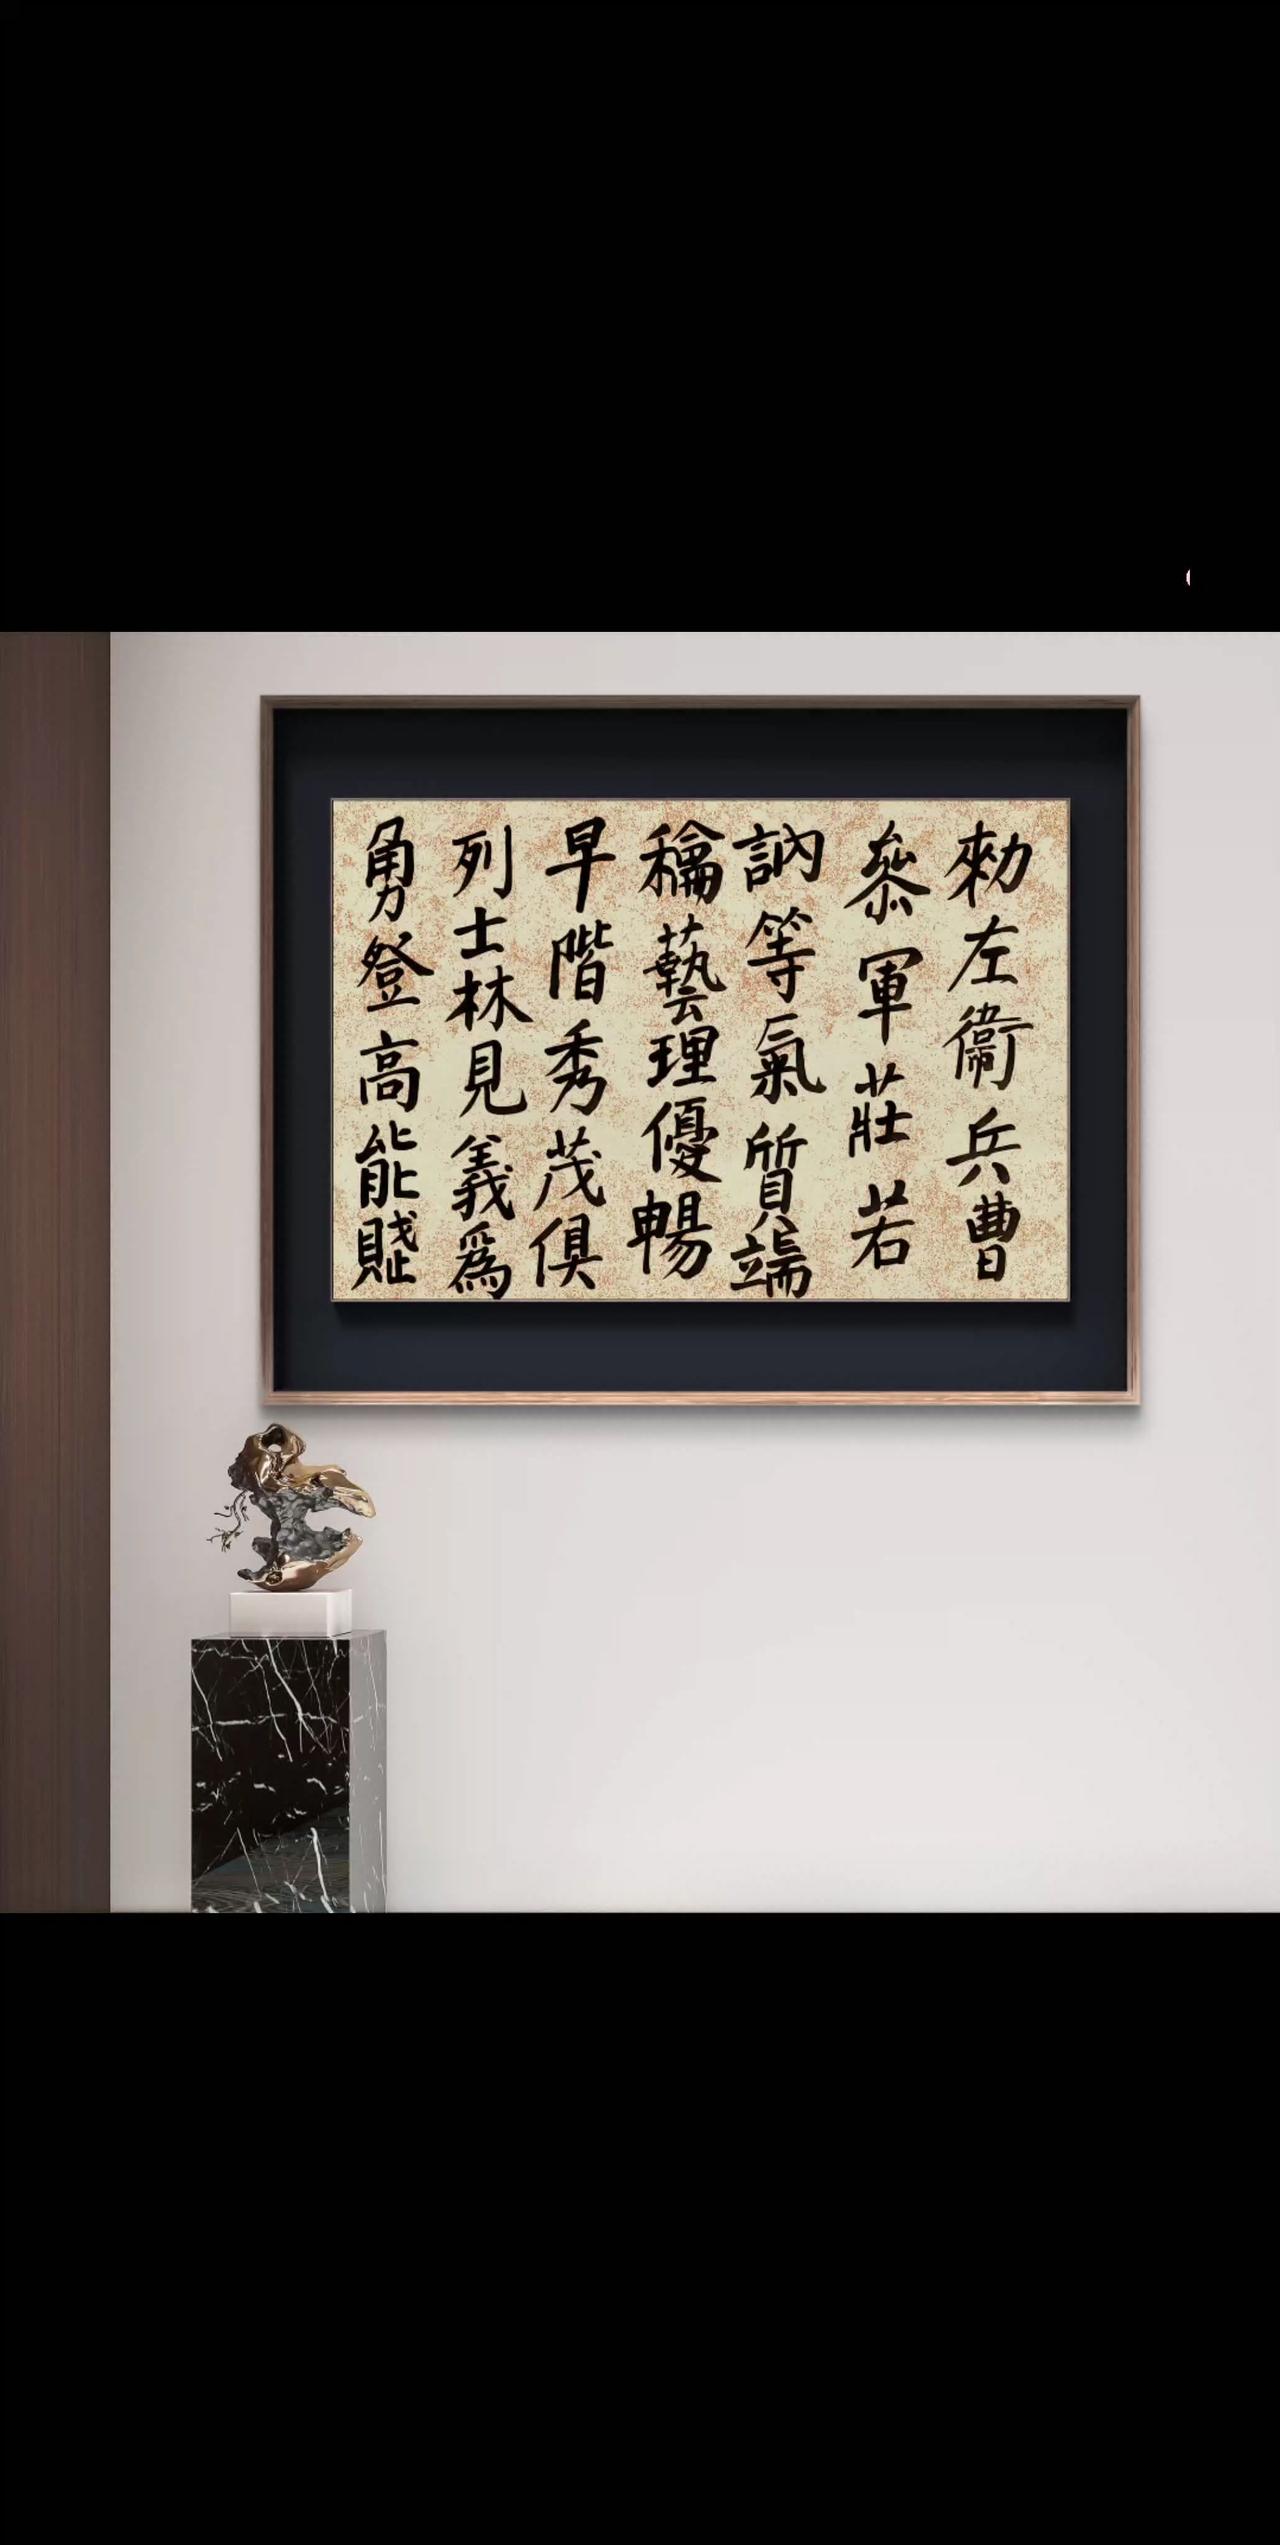 勑左衞兵曹
叅軍莊若
訥等氣質端
穐藝理優暢
早階秀茂俱
列士林見義為
勇登高能賦